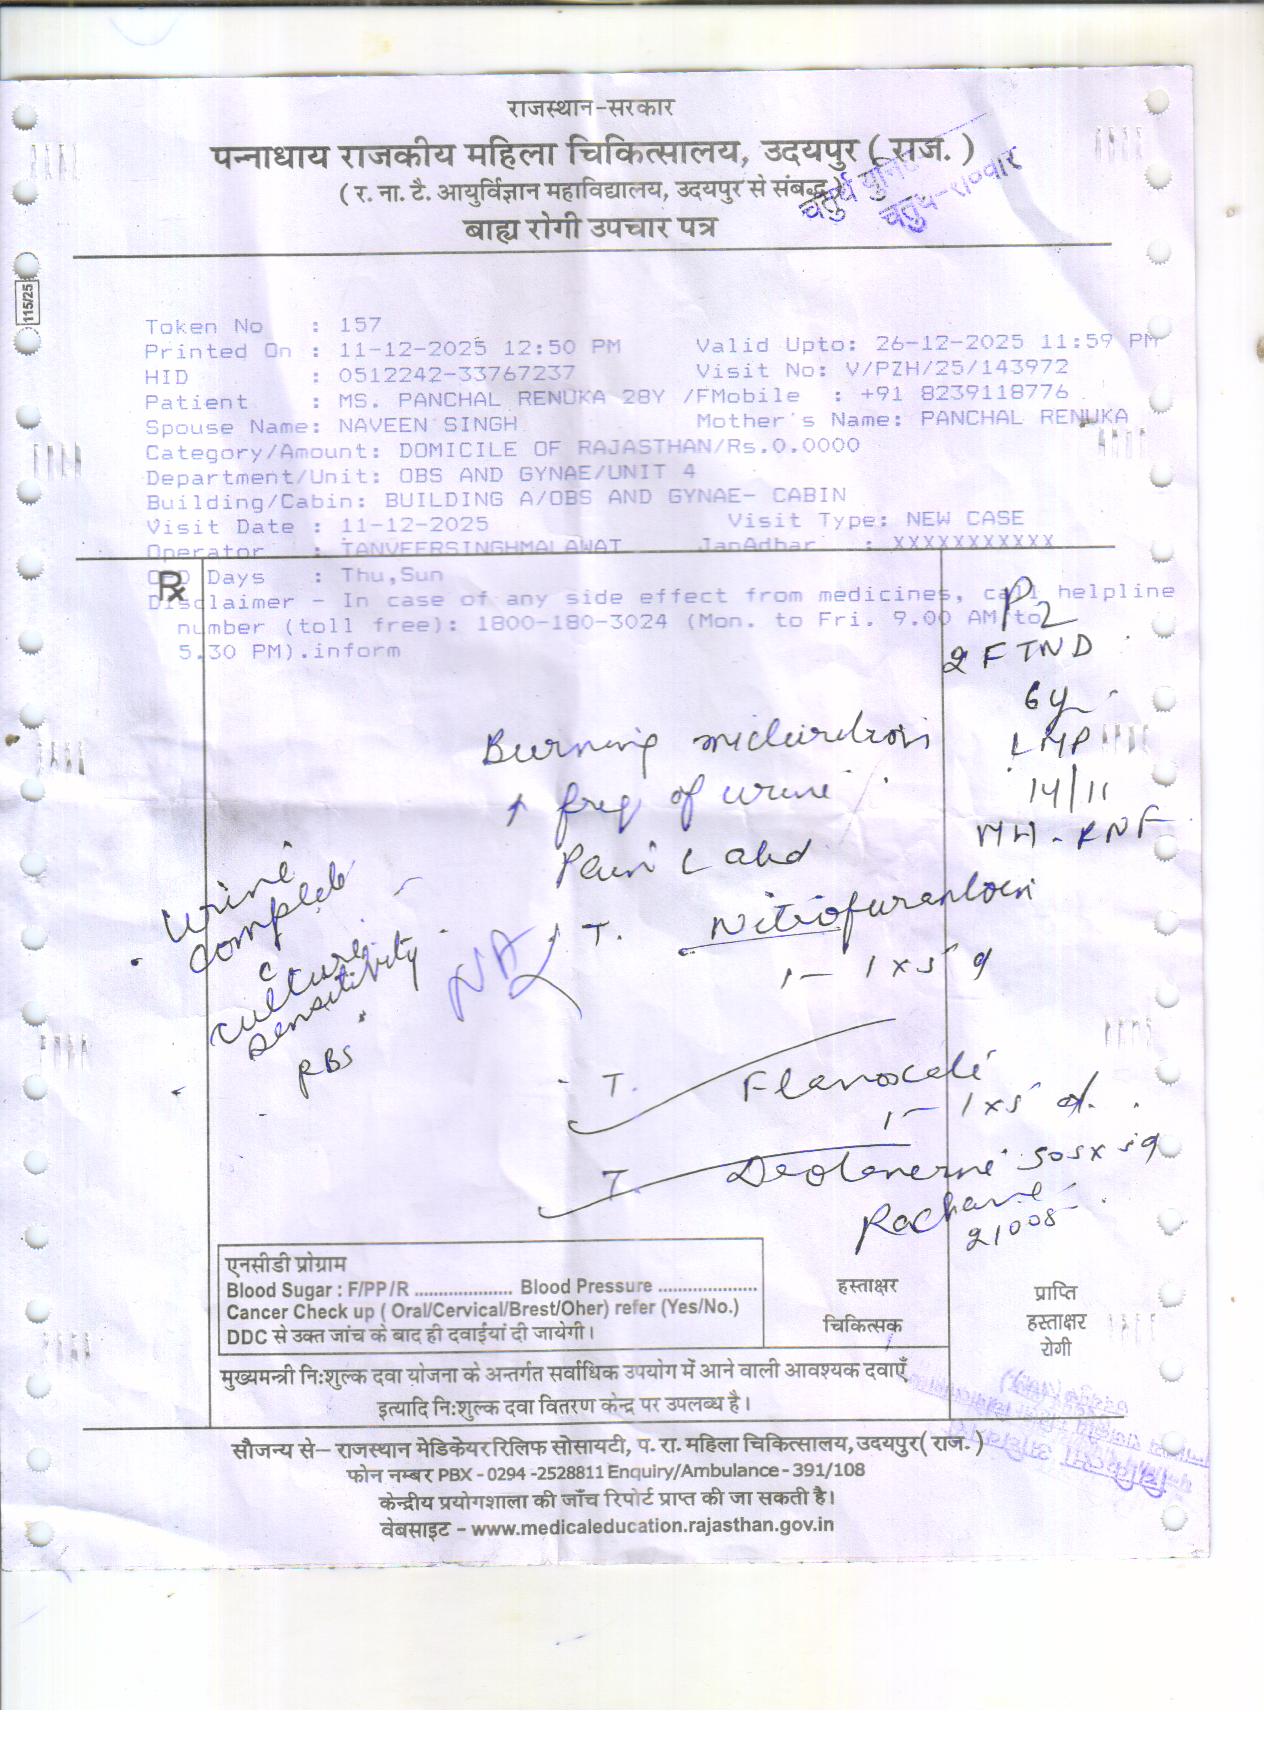 राजस्थान-सरकार
पन्नाधाय राजकीय महिला चिकित्सालय, उदयपुर ( राज. )
( र. ना. टै. आयुर्विज्ञान महाविद्यालय, उदयपुर से संबद्ध )
चतुर्थ
बाह्य रोगी उपचार पत्र
115/25
Token No : 157
Printed On : 11-12-2025 12:50 PM Valid Upto: 26-12-2025 11:59 PM
HID : 0512242-33767237 Visit No: V/PZH/25/143972
Patient : MS. PANCHAL RENUKA 28Y /FMobile : +91 8239118776
Spouse Name: NAVEEN SINGH Mother's Name: PANCHAL RENUKA
Category/Amount: DOMICILE OF RAJASTHAN/Rs.0.0000
Department/Unit: OBS AND GYNAE/UNIT 4
Building/Cabin: BUILDING A/OBS AND GYNAE- CABIN
Visit Date : 11-12-2025 Visit Type: NEW CASE
Operator : TANVEERSINGHMALAWAT JanAdhar : XXXXXXXXXXX
Rx
OPD Days : Thu,Sun
Disclaimer - In case of any side effect from medicines, call helpline
number (toll free): 1800-180-3024 (Mon. to Fri. 9.00 AM to
5.30 PM).inform
P2
2 FTND
6y
LMP
14/11
MH -
Burning
↑ freq of urine
Pain
urine
complete
culture
sensitivity
RBS
NA
T. Nitrofurantoin
1 - 1 x 5 d
T.
1 - 1 x 5 d.
T. SOS x 5 d
21008
एनसीडी प्रोग्राम
Blood Sugar : F/PP/R ..................... Blood Pressure ...................
Cancer Check up ( Oral/Cervical/Brest/Oher) refer (Yes/No.)
DDC से उक्त जांच के बाद ही दवाईयां दी जायेगी।
हस्ताक्षर
चिकित्सक
प्राप्ति
हस्ताक्षर
रोगी
मुख्यमन्त्री निःशुल्क दवा योजना के अन्तर्गत सर्वाधिक उपयोग में आने वाली आवश्यक दवाएँ
इत्यादि निःशुल्क दवा वितरण केन्द्र पर उपलब्ध है।
सौजन्य से– राजस्थान मेडिकेयर रिलिफ सोसायटी, प. रा. महिला चिकित्सालय, उदयपुर( राज. )
फोन नम्बर PBX - 0294 -2528811 Enquiry/Ambulance - 391/108
केन्द्रीय प्रयोगशाला की जाँच रिपोर्ट प्राप्त की जा सकती है।
वेबसाइट – www.medicaleducation.rajasthan.gov.in